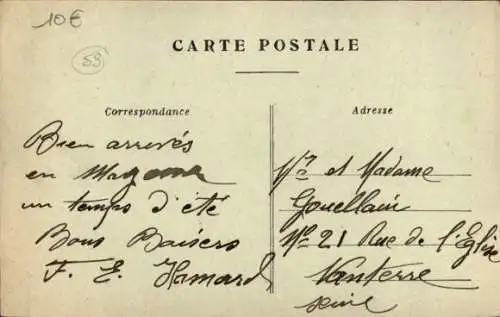 10€
59
CARTE POSTALE
Correspondance
Adresse
Bien arrivés
en
un temps d'été
Bons Baisers
F. E. Hamard
Mr et Madame
Gouellain
No 21 Rue de l'Eglise
Nanterre
Seine